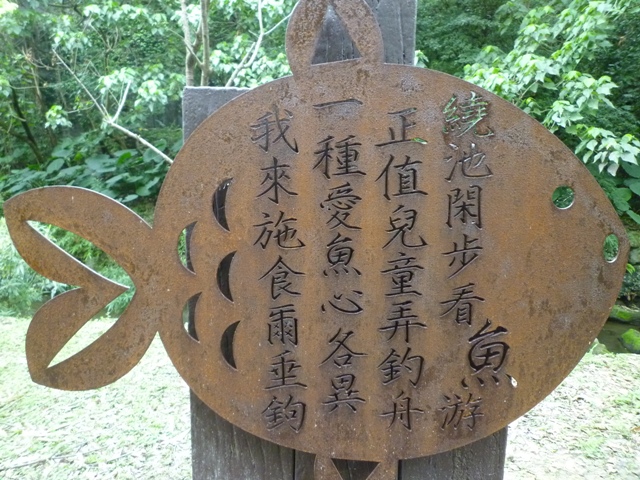 繞池閑步看魚游
正值兒童弄釣舟
一種愛魚心各異
我來施食爾垂鉤